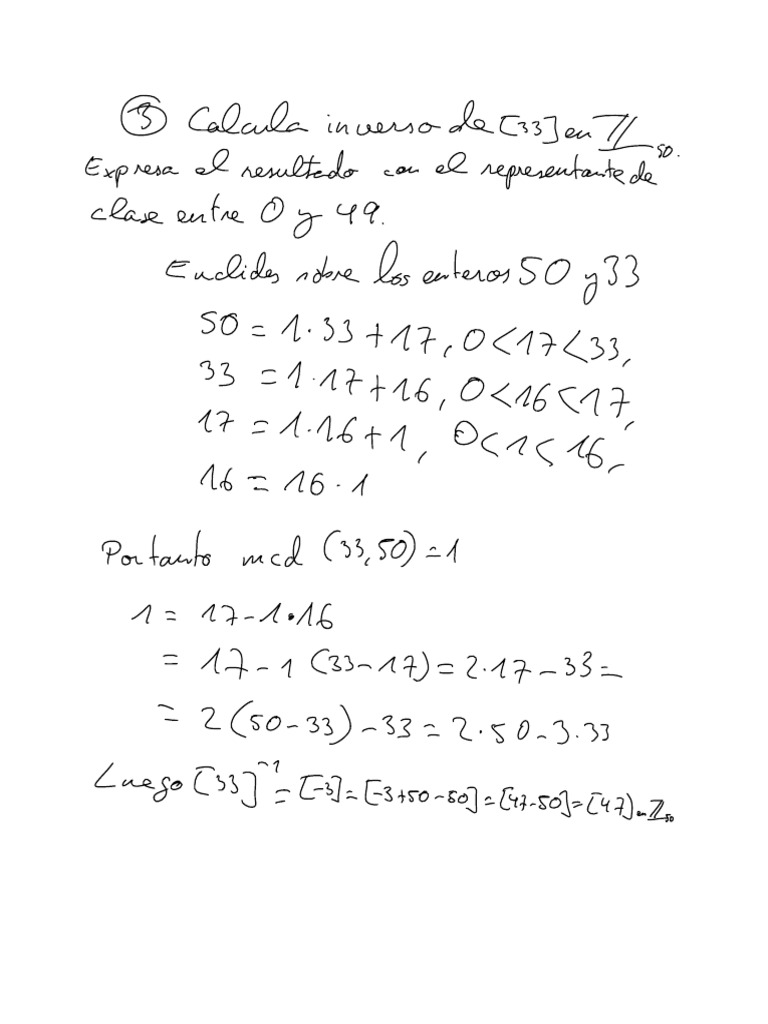 ③ Calcula inverso de [33] en ℤ₅₀.
Expresa el resultado con el representante de
clase entre 0 y 49.
Euclides sobre los enteros 50 y 33
50 = 1·33+17, 0<17<33,
33 = 1·17+16, 0<16<17,
17 = 1·16+1, 0<1<16,
16 = 16·1
Por tanto mcd (33,50)=1
1 = 17-1·16
= 17-1 (33-17) = 2·17-33=
= 2(50-33)-33 = 2·50-3·33
Luego [33]⁻¹ = [-3] = [-3+50-50] = [47-50] = [47] en ℤ₅₀